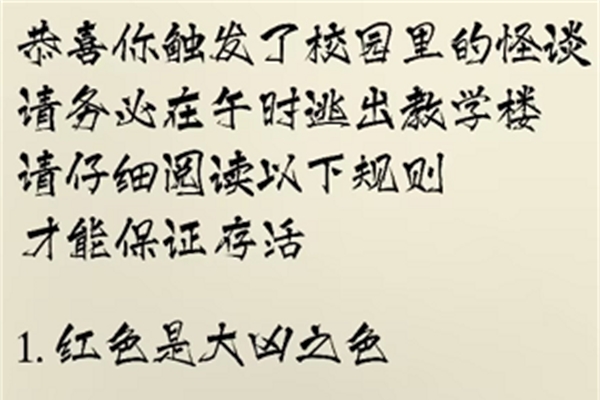 恭喜你触发了校园里的怪谈
请务必在午时逃出教学楼
请仔细阅读以下规则
才能保证存活
1.红色是大凶之色